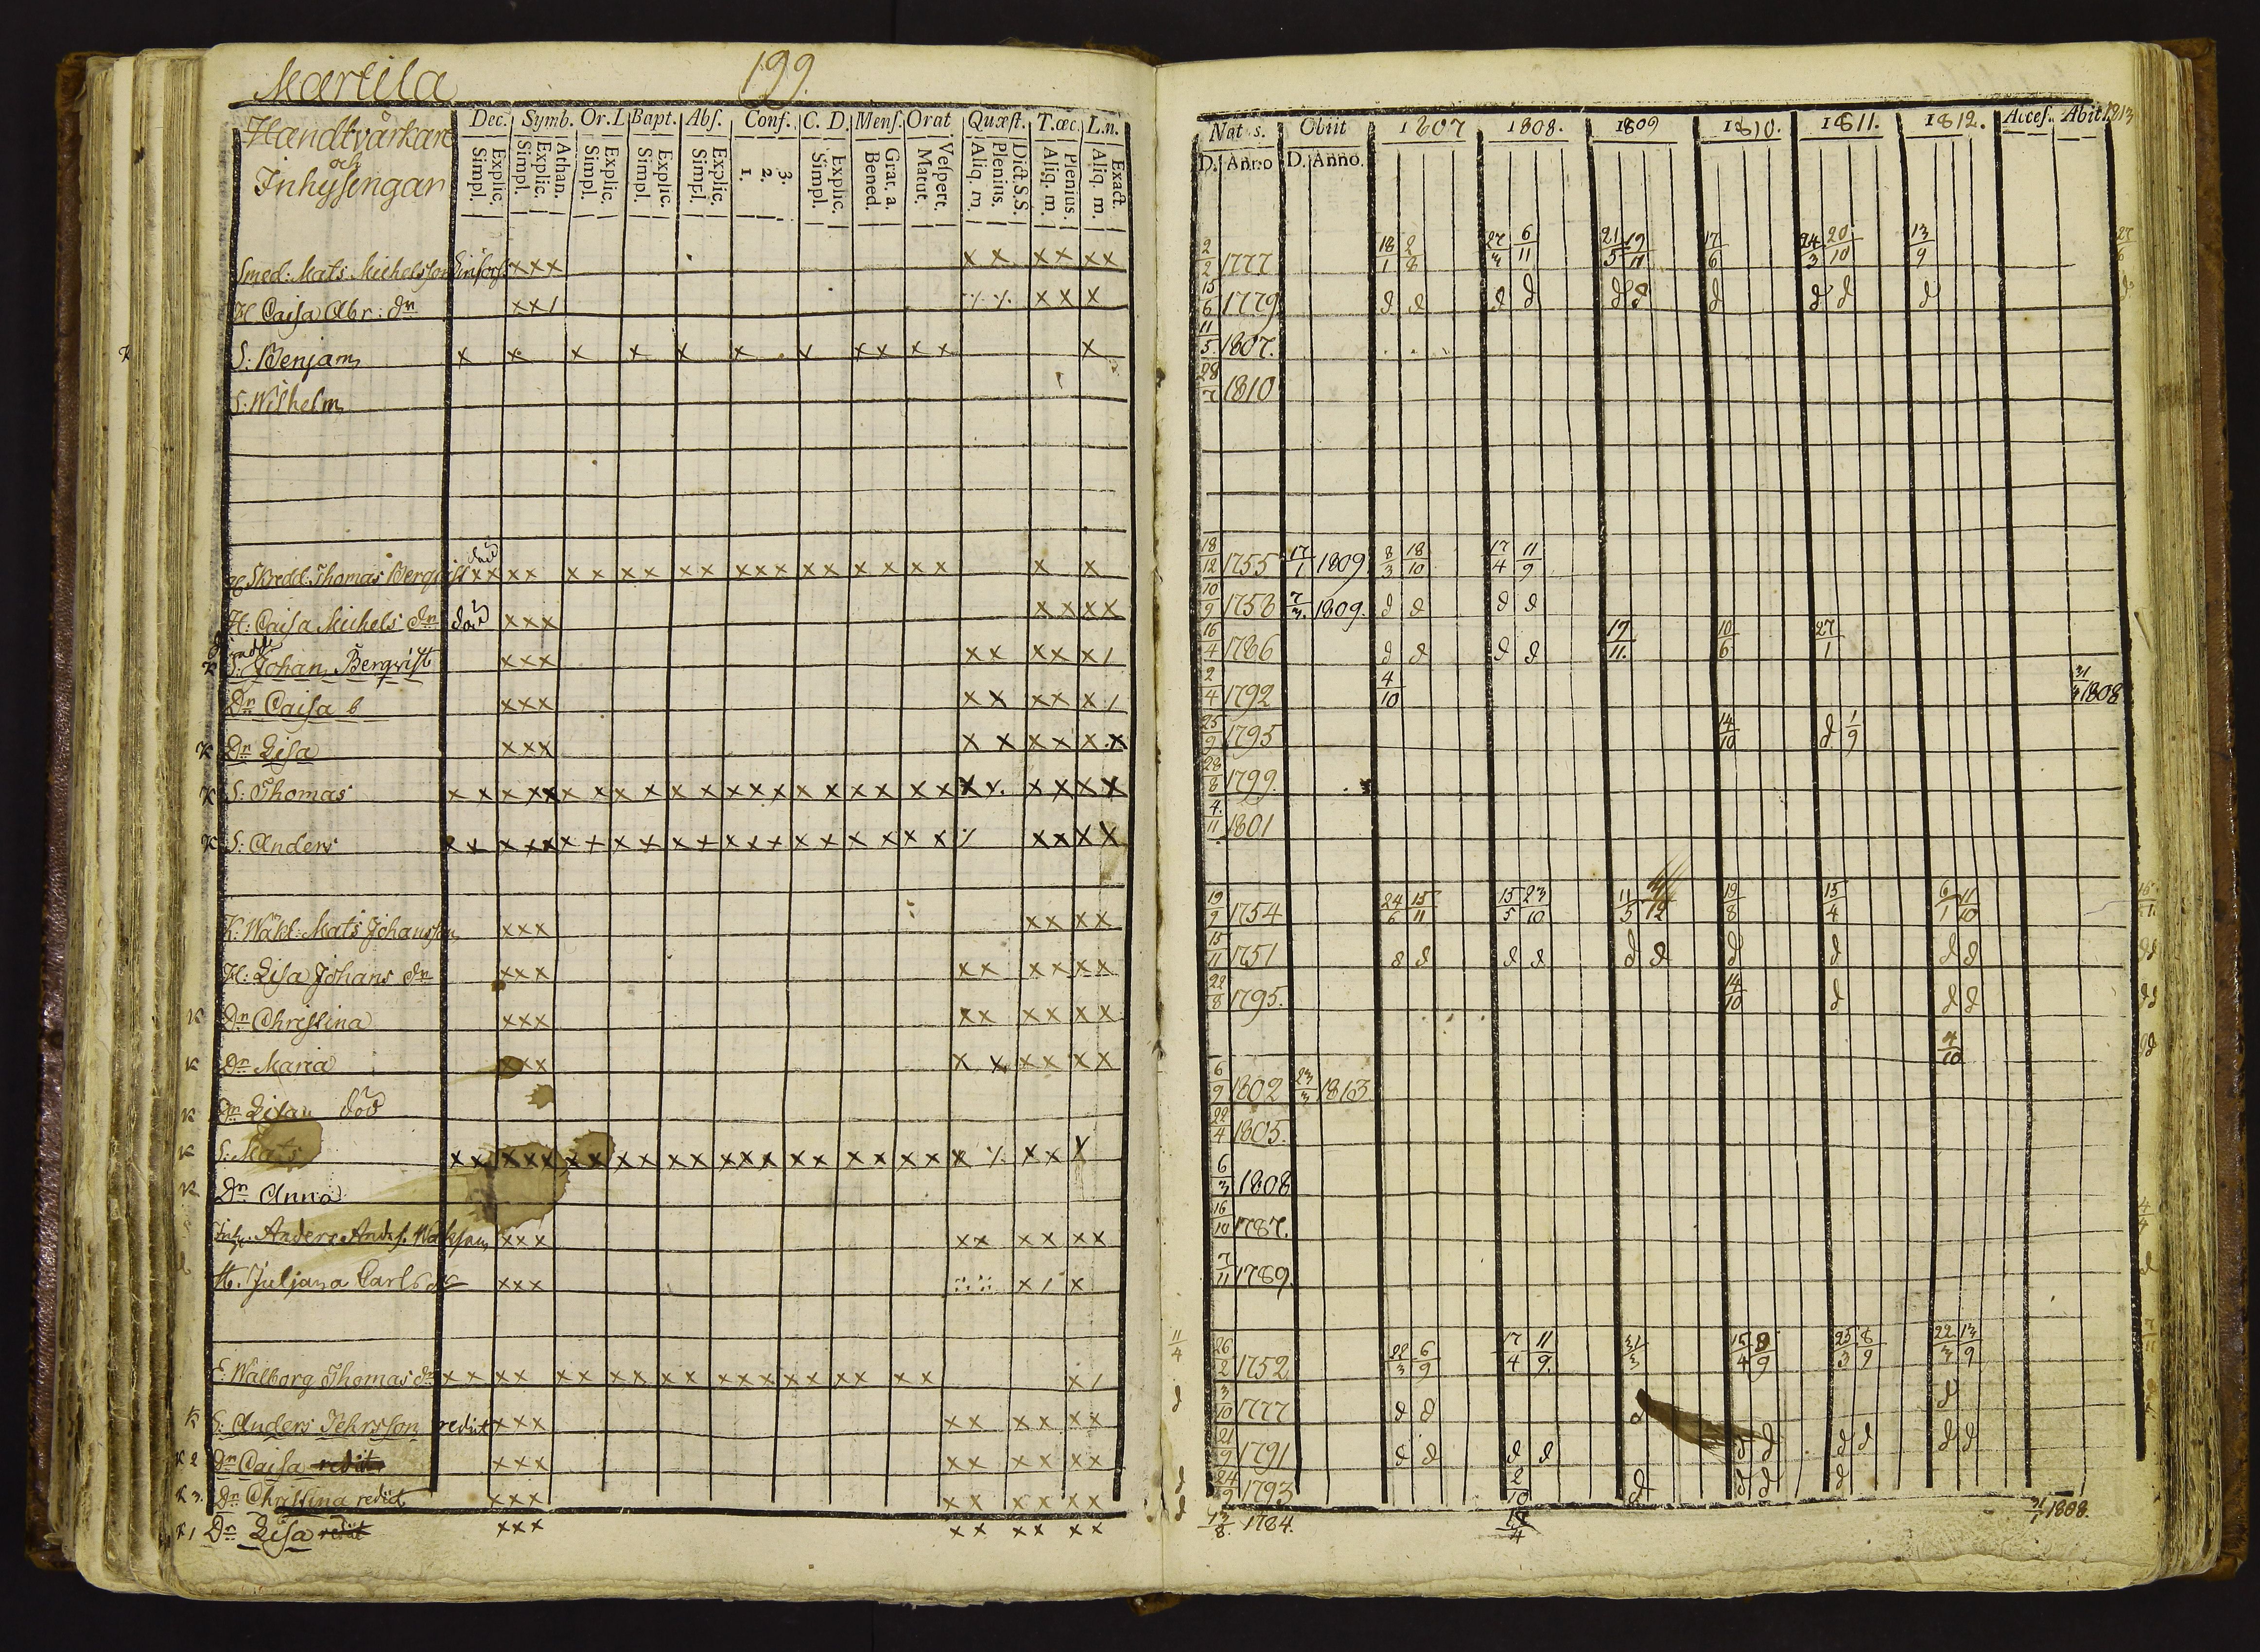 Martila 199.
Handtvärkare
och
Inhysingar
Dec. Symb. Or. L Bapt. Abs. Conf. C. D. Mens. Orat. Quæst. T. œc. L. n.
Explic. Simpl. Athan. Explic. Simpl. Explic. Simpl. Explic. Simpl. Explic. Simpl. 3. 2. 1. Explic. Simpl. Grat. a. Bened. Vespert. Matut. Dict. S.S. Plenius. Aliq. m. Plenius. Aliq. m. Exact. Aliq. m.
Smed: Mats Michelsson xxx xx xx xx
H. Caisa Abr: dr xx/ xx x
S: Benjam x x x x x x x xx xx x
S: Wilhelm
Skredd. Thomas Berqvist död xx xx xx xx xx xxx xx xx xx x x
H: Caisa Michels dr död xxx xx xx
S: Johan Berqvist xxx xx xx x/
Dr Caisa xxx xx xx x/
K Dr Lisa xxx xx xx xx
K S: Thomas xx xxx xx xx xx xxx xx xx xx xx xx
K S: Anders xx xxx xx xx xx xxx xx xx xx xx xx
Mats Johansson xxx xx xx
H: Lisa Johans dr xxx xx xx xx
K Dr Christina xxx xx xx xx
K Dr Maria xxx xx xx xx
K Dr Lisa död
K S: Mats xx xxx xx xx xx xxx xx xx xx x xx x
K Dr Anna
Anders Anders. xxx xx xx xx
H. Juljana Carls dr xxx x/ x
E: Walborg Thomas dr xx xx xx xx xx xxx xx xx xx x/
K S: Anders Pehrsson rediit xxx xx xx xx
K 2 Dr Caisa rediit xxx xx xx xx
K 3. Dr Christina rediit xxx xx xx xx
K 1 Dr Lisa rediit xxx xx xx xx
Obiit 1807 1808. 1809 1810. 1811. 1812. Acces. Abiit 1813
D. Anno D. Anno.
2/2 1777 18/1 2/8 27/3 6/11 21/5 19/11 17/6 24/3 20/10 13/9
15/6 1779 d d d d d d d d d d
11/5 1807.
28/7 1810
18/12 1755 17/1 1809 8/3 18/10 17/4 11/9
10/9 1758 7/3 1809. d d d d
16/4 1786 d d d d 19/11. 10/6 27/1
2/4 1792 4/10 31/3 1808
25/9 1795 14/10 d 1/9
28/8 1799.
4./11 1801
19/9 1754 24/6 15/11 15/5 23/10 11/5 19/8 15/4 6/1 11/10
15/11 1751 d d d d d d d d d d
22/8 1795. 14/10 d d d
4/10
6/9 1802 23/3 1813
22/4 1805.
6/3 1808
16/10 1787.
7/11 1789.
11/4 26/2 1752 22/3 6/9 17/4 11/9. 31/3 15/4 8/9 25/3 8/9 22/3 13/9
d 3/10 1777 d d d d
21/9 1791 d d d d d d d d d d
d 24/9 1793 2/10 d d d d
d 13/8. 1784. 17/4 1808.